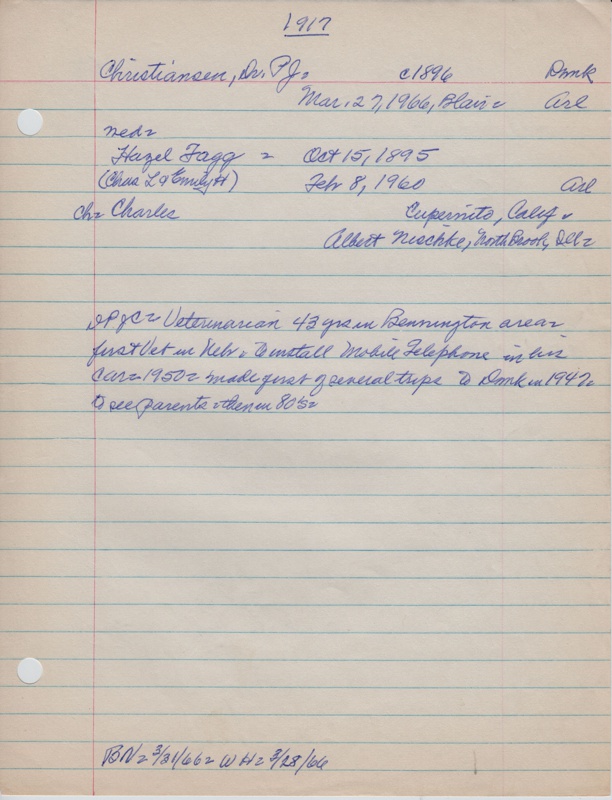 1917
Christiansen, Dr. P J= c1896 Dmk
Mar. 27, 1966, Blair= Arl
med=
Hazel Fagg = Oct 15, 1895
(Chas L & Emily H) Feb 8, 1960 Arl
ch= Charles Cupernito, Calif.
Albert Nischke, North Brook, Ill=
DPJC= Veterinarian 43 yrs in Bennington area=
first Vet in Nebr. to install Mobile Telephone in his
car= 1950= made first of several trips to Dmk in 1947=
to see parents= then in 80's=
BN= 3/31/66= WH= 3/28/66